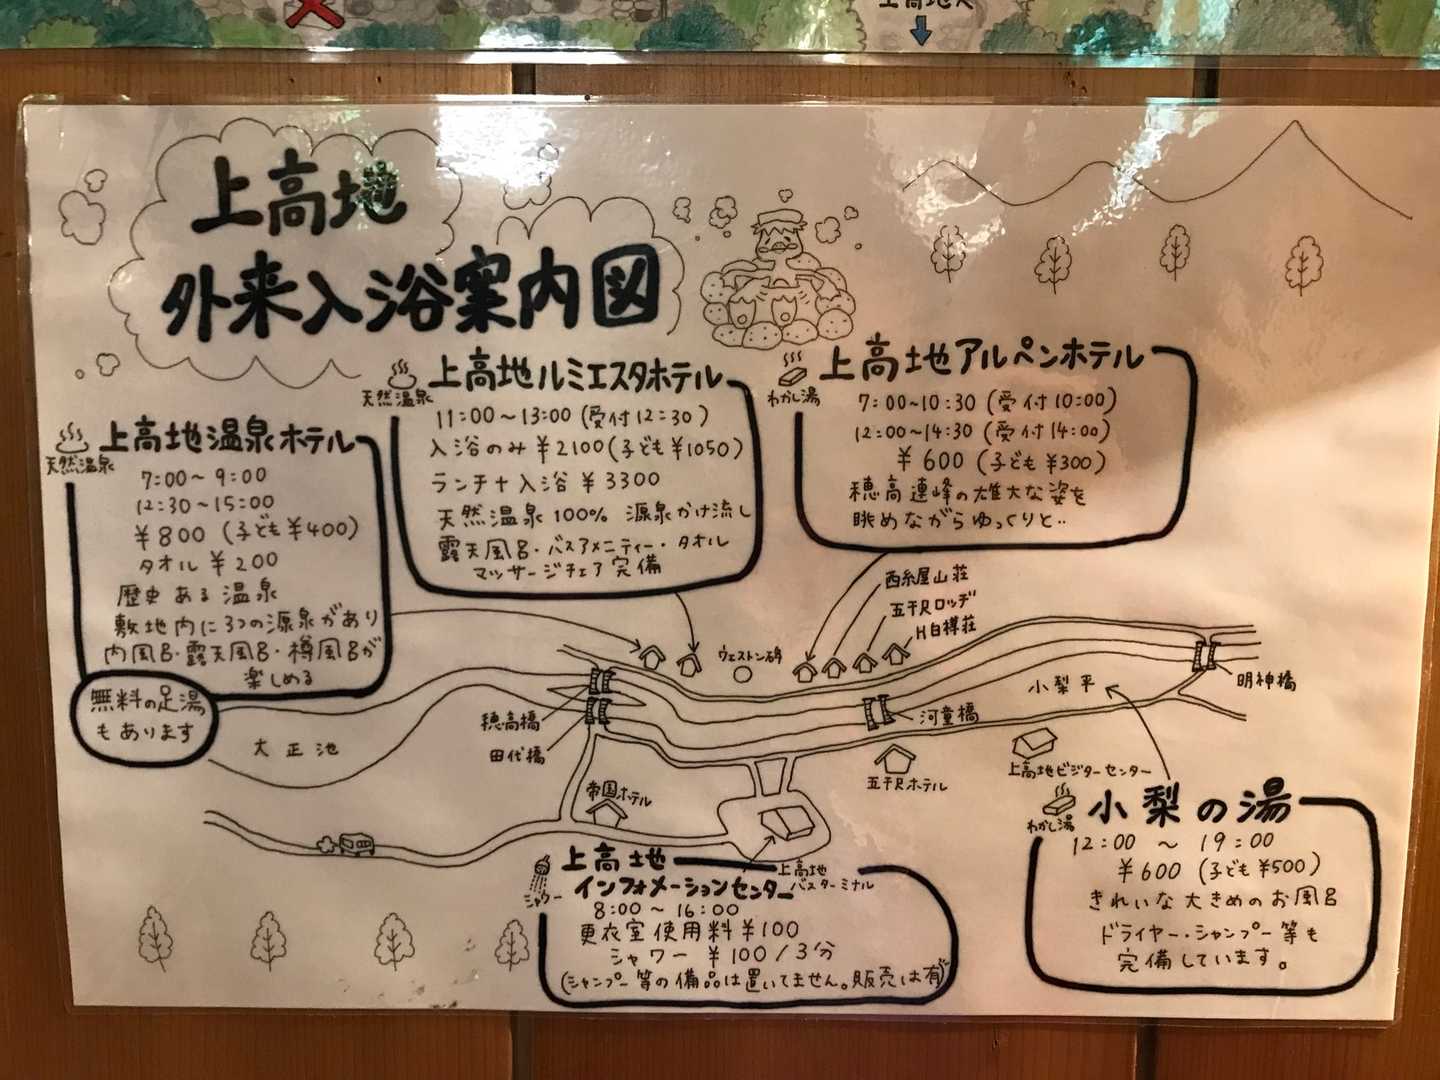 上高地へ
上高地
外来入浴案内図
天然温泉
上高地温泉ホテル
7:00～9:00
12:30～15:00
¥800(子ども¥400)
タオル¥200
歴史ある温泉
敷地内に3つの源泉があり
内風呂・露天風呂・樽風呂が
楽しめる
無料の足湯
もあります
天然温泉
上高地ルミエスタホテル
11:00～13:00(受付12:30)
入浴のみ¥2100(子ども¥1050)
ランチ+入浴¥3300
天然温泉100% 源泉かけ流し
露天風呂・バスアメニティー・タオル
マッサージチェア完備
わかし湯
上高地アルペンホテル
7:00～10:30(受付10:00)
12:00～14:30(受付14:00)
¥600(子ども¥300)
穂高連峰の雄大な姿を
眺めながらゆっくりと‥
西糸屋山荘
五千尺ロッヂ
白樺荘
ウェストン碑
明神橋
小梨平
河童橋
穂高橋
田代橋
大正池
帝国ホテル
五千尺ホテル
上高地ビジターセンター
上高地
バスターミナル
シャワー
上高地
インフォメーションセンター
8:00～16:00
更衣室使用料¥100
シャワー¥100/3分
(シャンプー等の備品は置いてません。販売は有)
わかし湯
小梨の湯
12:00～19:00
¥600(子ども¥500)
きれいな大きめのお風呂
ドライヤー・シャンプー等も
完備しています。